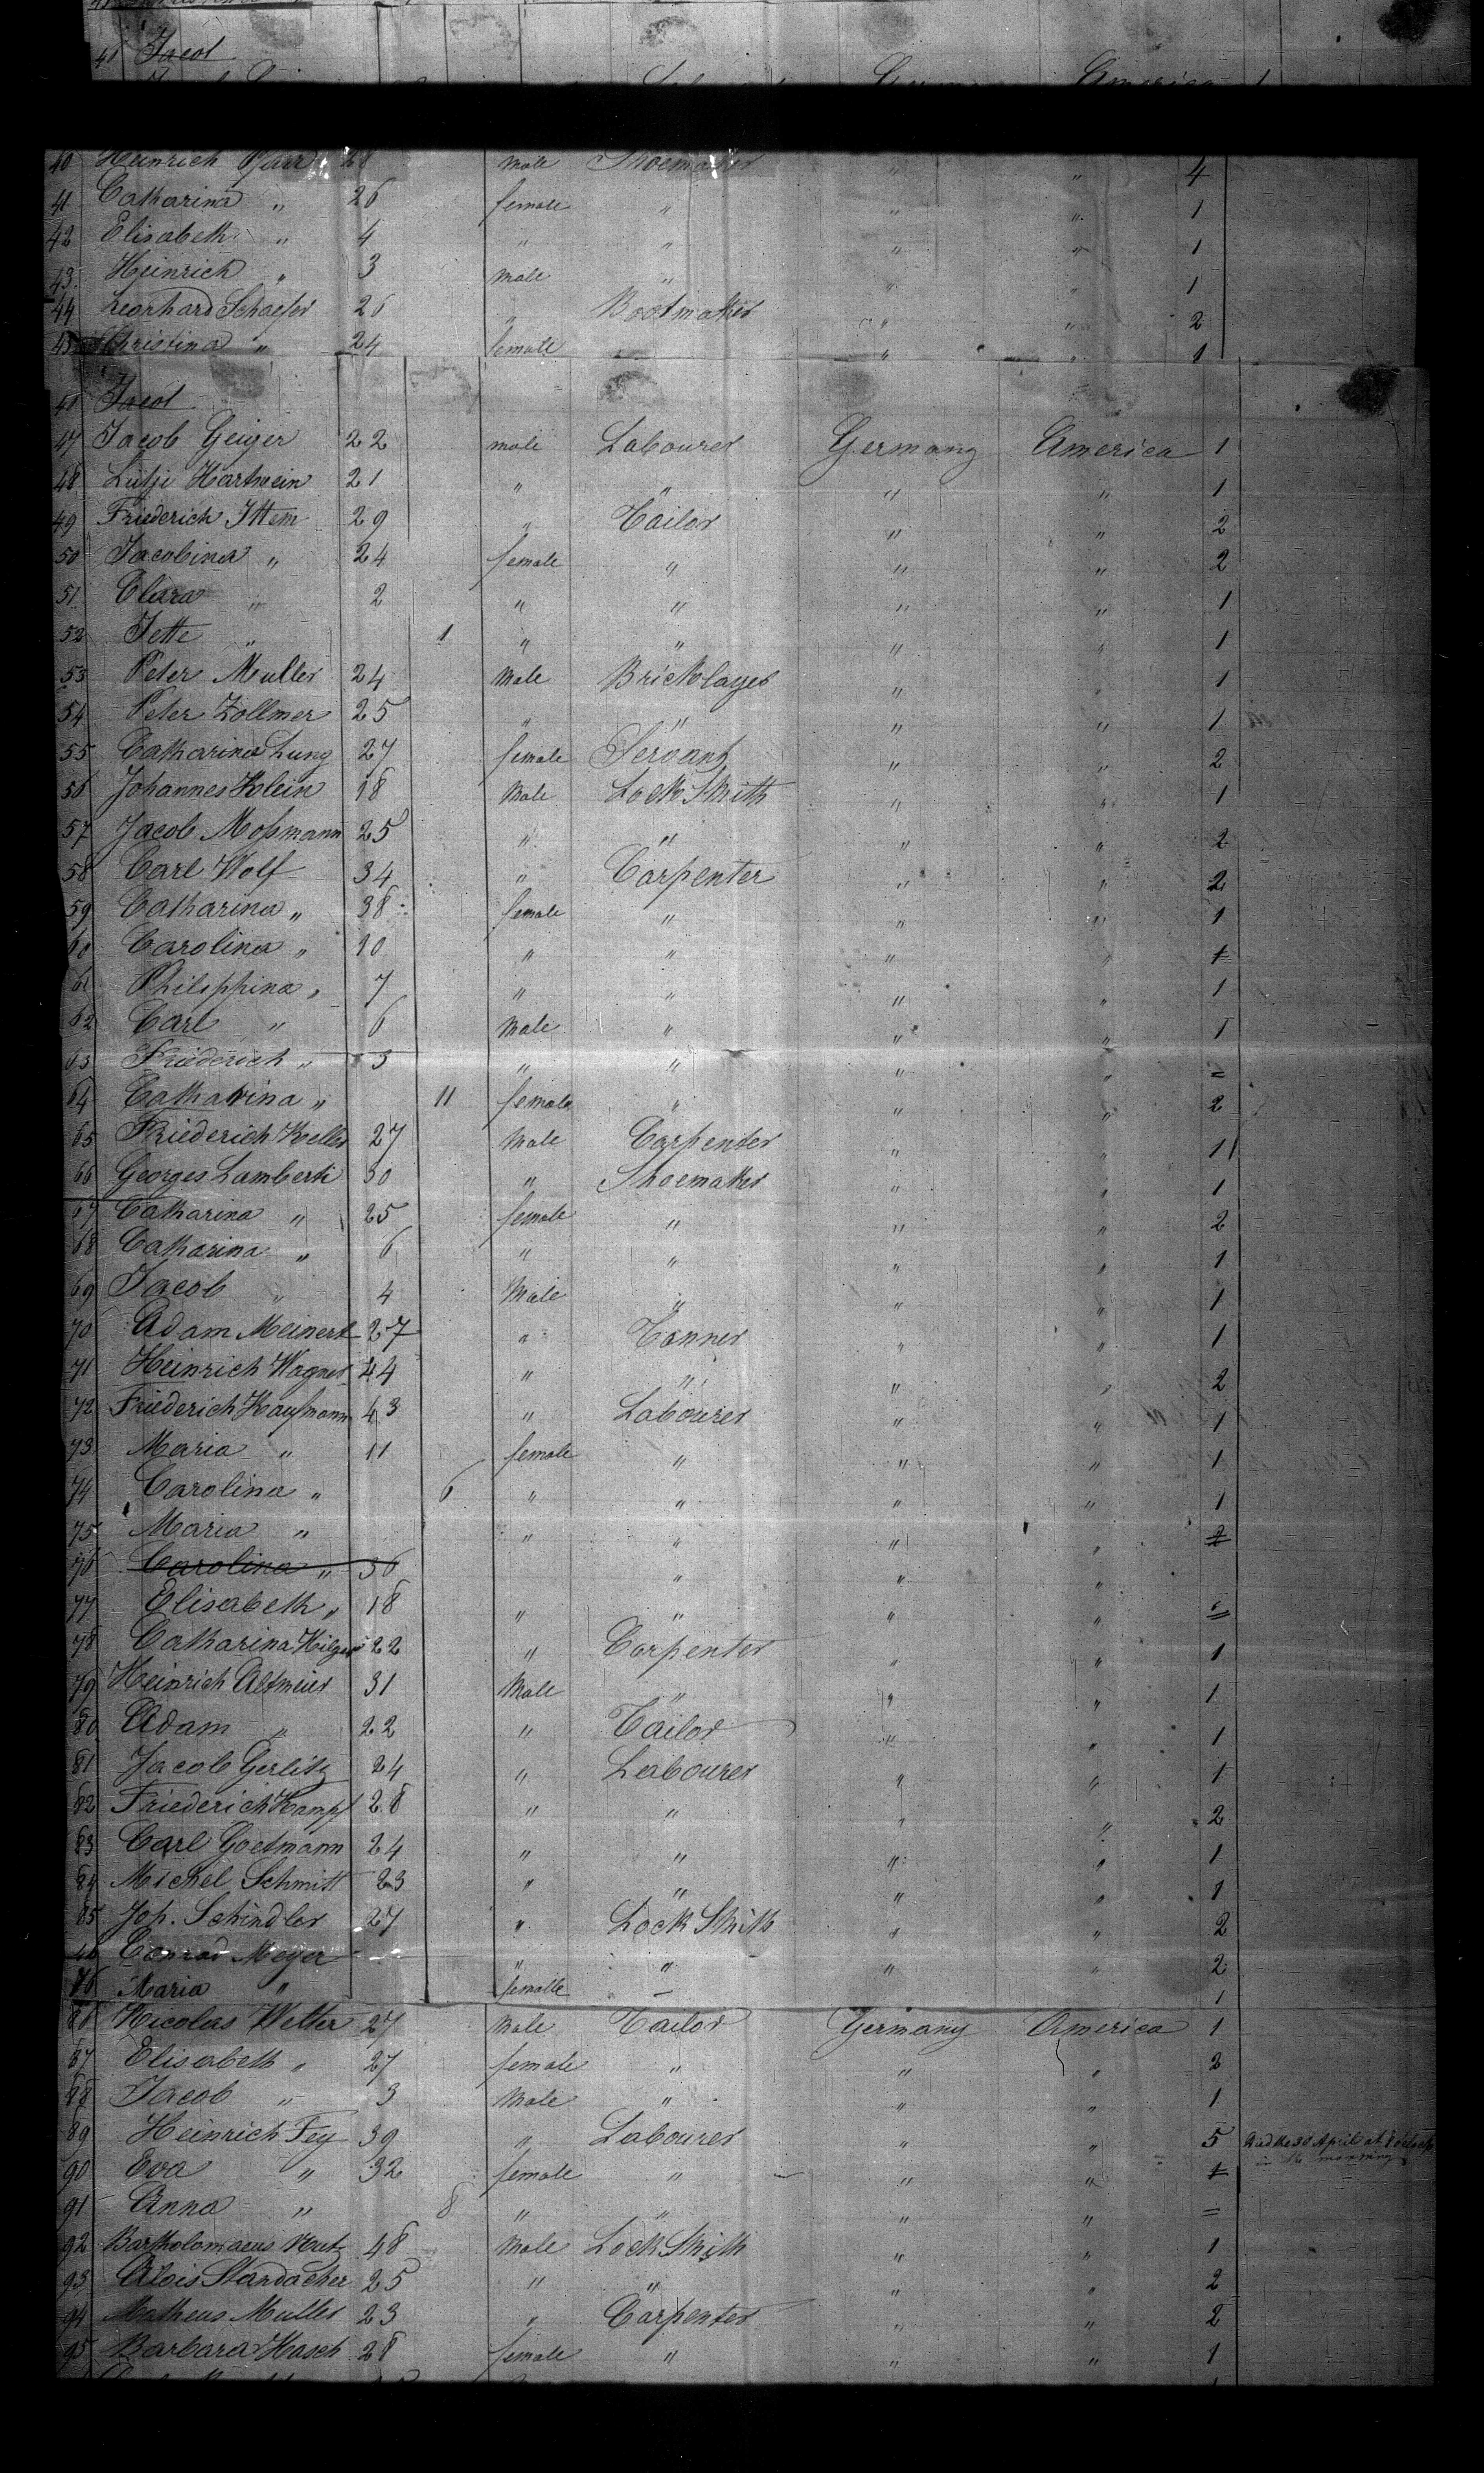 46 Jacob
Germany America 1
40 Heinrich Pfarr 28 male Shoemaker " " 4
41 Catharina " 26 female " " " 1
42 Elisabeth " 4 " " " " 1
43 Heinrich " 3 male " " " 1
44 Leonhard Schaefer 26 " Bootmaker " " 2
45 Christina " 24 female " " 1
46 Jacob
47 Jacob Geiger 22 male Labourer Germany America 1
48 Lütje Hartwein 21 " " " " 1
49 Friederich Ittem 29 " Tailor " " 2
50 Jacobina " 24 female " " " 2
51 Clara " 2 " " " " 1
52 Jette " 1 " " " " 1
53 Peter Muller 24 Male Bricklayer " " 1
54 Peter Zollmer 25 " " " " 1
55 Catharina Lung 27 female Servant " " 2
56 Johannes Klein 18 Male Lock Smith " " 1
57 Jacob Moßmann 25 " " " " 2
58 Carl Wolf 34 " Carpenter " " 2
59 Catharina " 38 female " " " 1
60 Carolina " 10 " " " " 1
61 Philippina " 7 " " " " 1
62 Carl " 6 Male " " " 1
63 Friederich " 3 " " " " =
64 Catharina " 11 female " " " 2
65 Friederich Keller 27 Male Carpenter " " 1
66 Georges Lamberti 30 " Shoemaker " " 1
67 Catharina " 25 female " " " 2
68 Catharina " 6 " " " " 1
69 Jacob " 4 Male " " " 1
70 Adam Meinert 27 " Tanner " " 1
71 Heinrich Wagner 44 " " " " 2
72 Friederich Kaufmann 43 " Labourer " " 1
73 Maria " 11 female " " " 1
74 Carolina " 6 " " " " 1
75 Maria " " " " " 2
76 Carolina " 36 " " "
77 Elisabeth " 18 " " " "
78 Catharina Hilger 22 " Carpenter " " 1
79 Heinrich Altmeier 31 Male " " " 1
80 Adam " 22 " Tailor " " 1
81 Jacob Gerlitz 24 " Labourer " " 1
82 Friederich Kampf 28 " " " " 2
83 Carl Goetmann 24 " " " " 1
84 Michel Schmitt 23 " " " " 1
85 Joh. Schindler 27 " Lock Smith " " 2
46 Conrad Meyer " " " " 2
76 Maria " female 1
86 Nicolas Welter 27 Male Tailor Germany America 1
87 Elisabeth " 27 female " " " 2
88 Jacob " 3 Male " " " 1
89 Heinrich Fey 39 " Labourer " " 5 died the 30 April at 8 oclock
in the morning
90 Eva " 32 female " " " 1
91 Anna " 8 " " " " =
92 Bartholomaeus Kutz 48 Male Lock Smith " " 1
93 Alois Standacher 25 " " " " 2
94 Matheus Muller 23 " Carpenter " " 2
95 Barbara Hasch 28 female " " " 1